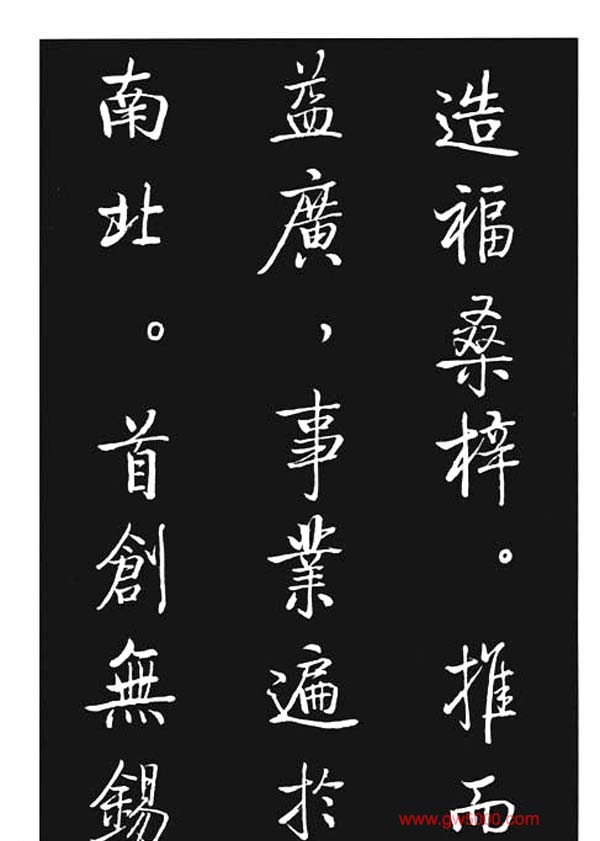 造福桑梓。推而
益廣，事業遍於
南北。首創無錫
www.gw5000.com